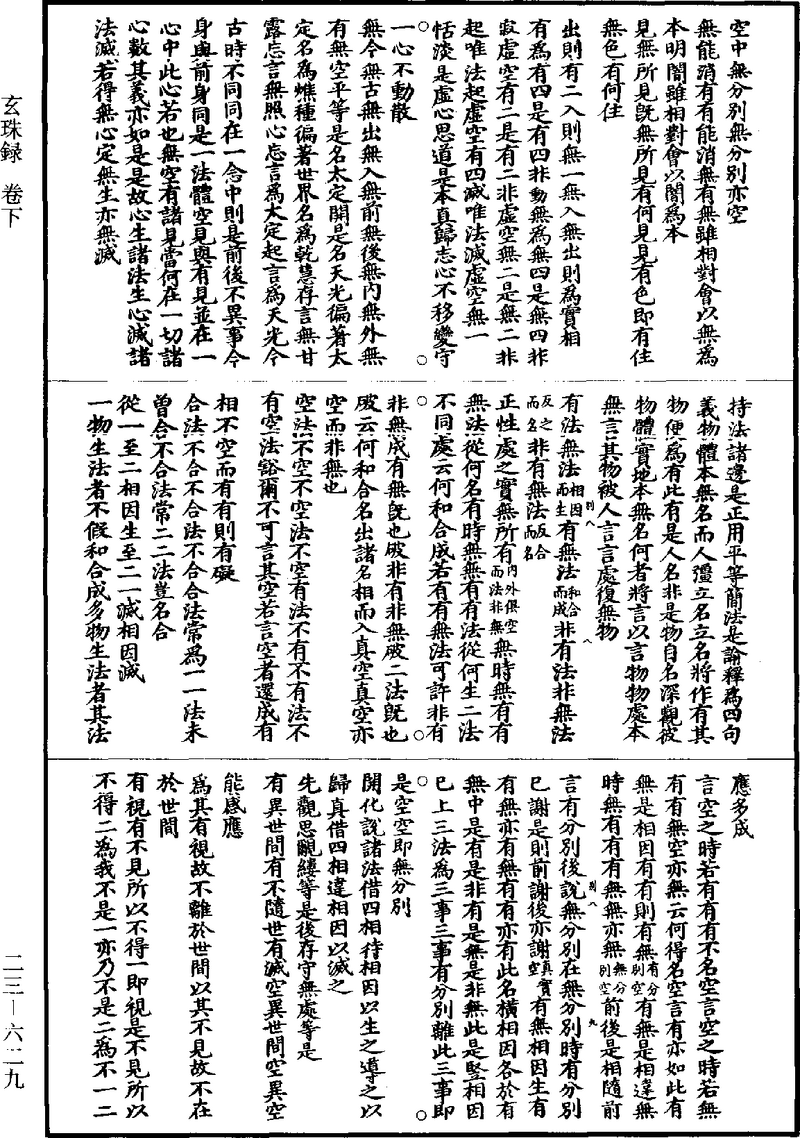 空中無分別無分別亦空
無能消有有能消無有無雖相對會以無為
本明闇雖相對會以闇為本
見無所見既無所見有何見見有色即有住
無色有何住
出則有二入則無一無入無出則為實相
有為有四是有四非動無為無四是無四非
寂虛空有二是有二非虛空無二是無二非
起唯法起虛空有四滅唯法滅虛空無一
恬淡是虛心思道是本真歸志心不移變守
一心不動散
無今無古無出無入無前無後無內無外無
有無空平等是名太定開是名天光徧著太
定名為蟭種徧著世界名為乾慧存言無甘
露忘言無照心忘言為太定起言為天光今
古時不同同在一念中則是前後不異事今
身與前身同是一法體空見與有見並在一
心中此心若也無空有諸見當何在一切諸
心數其義亦如是是故心生諸法生心滅諸
法滅若得無心定無生亦無滅
持法諸邊是正用平等簡法是論釋為四句
義物體本無名而人彊立名立名將作有其
物便為有此有是人名非是物自名深觀彼
物體實地本無名何者將言以言物物處本
無言其物被人言言處復無物
有法無法相因而生有無法和合而成非有法非無法
反之而名非有無法反合而名
正性處之實無所有內外俱空而法非無無時無有有
無法從何名有時無無有有法從何生二法
不同處云何和合成若有有無法可許非有
非無成有無既也破非有非無破二法既也
破云何和合名出諸名相而入真空真空亦
空而非無也
空法不空不空法不空有法不有不有法不
有空法豁爾不可言其空若言空者還成有
相不空而有有則有礙
合法不合不合法不合合法常為一一法未
曾合不合法常二二法豈名合
從一至二相因生至二一滅相因滅
一物生法者不假和合成多物生法者其法
應多成
言空之時若有有有不名空言空之時若無
有有無空亦無云何得名空言有亦如此有
無是相因有有則有無有分別空有無是相違無
時無有有有無無亦無無分別空前後是相隨前
言有分別後說無分別在無分別時有分別
已謝是則前謝後亦謝真實空有無相因生有
有無亦有無有有亦有此名橫相因各於有
無中是有是非有是無是非無此是豎相因
已上三法為三事三事有分別離此三事即
是空空即無分別
開化說諸法借四相待相因以生之導之以
歸真借四相違相因以滅之
先觀思覼縷等是後存守無處等是
有異世間有不隨世有滅空異世間空異空
能感應
為其有視故不離於世間以其不見故不在
於世間
有視有不見所以不得一即視是不見所以
不得二為我不是一亦乃不是二為不一二
玄珠録　卷下
二三—六二九